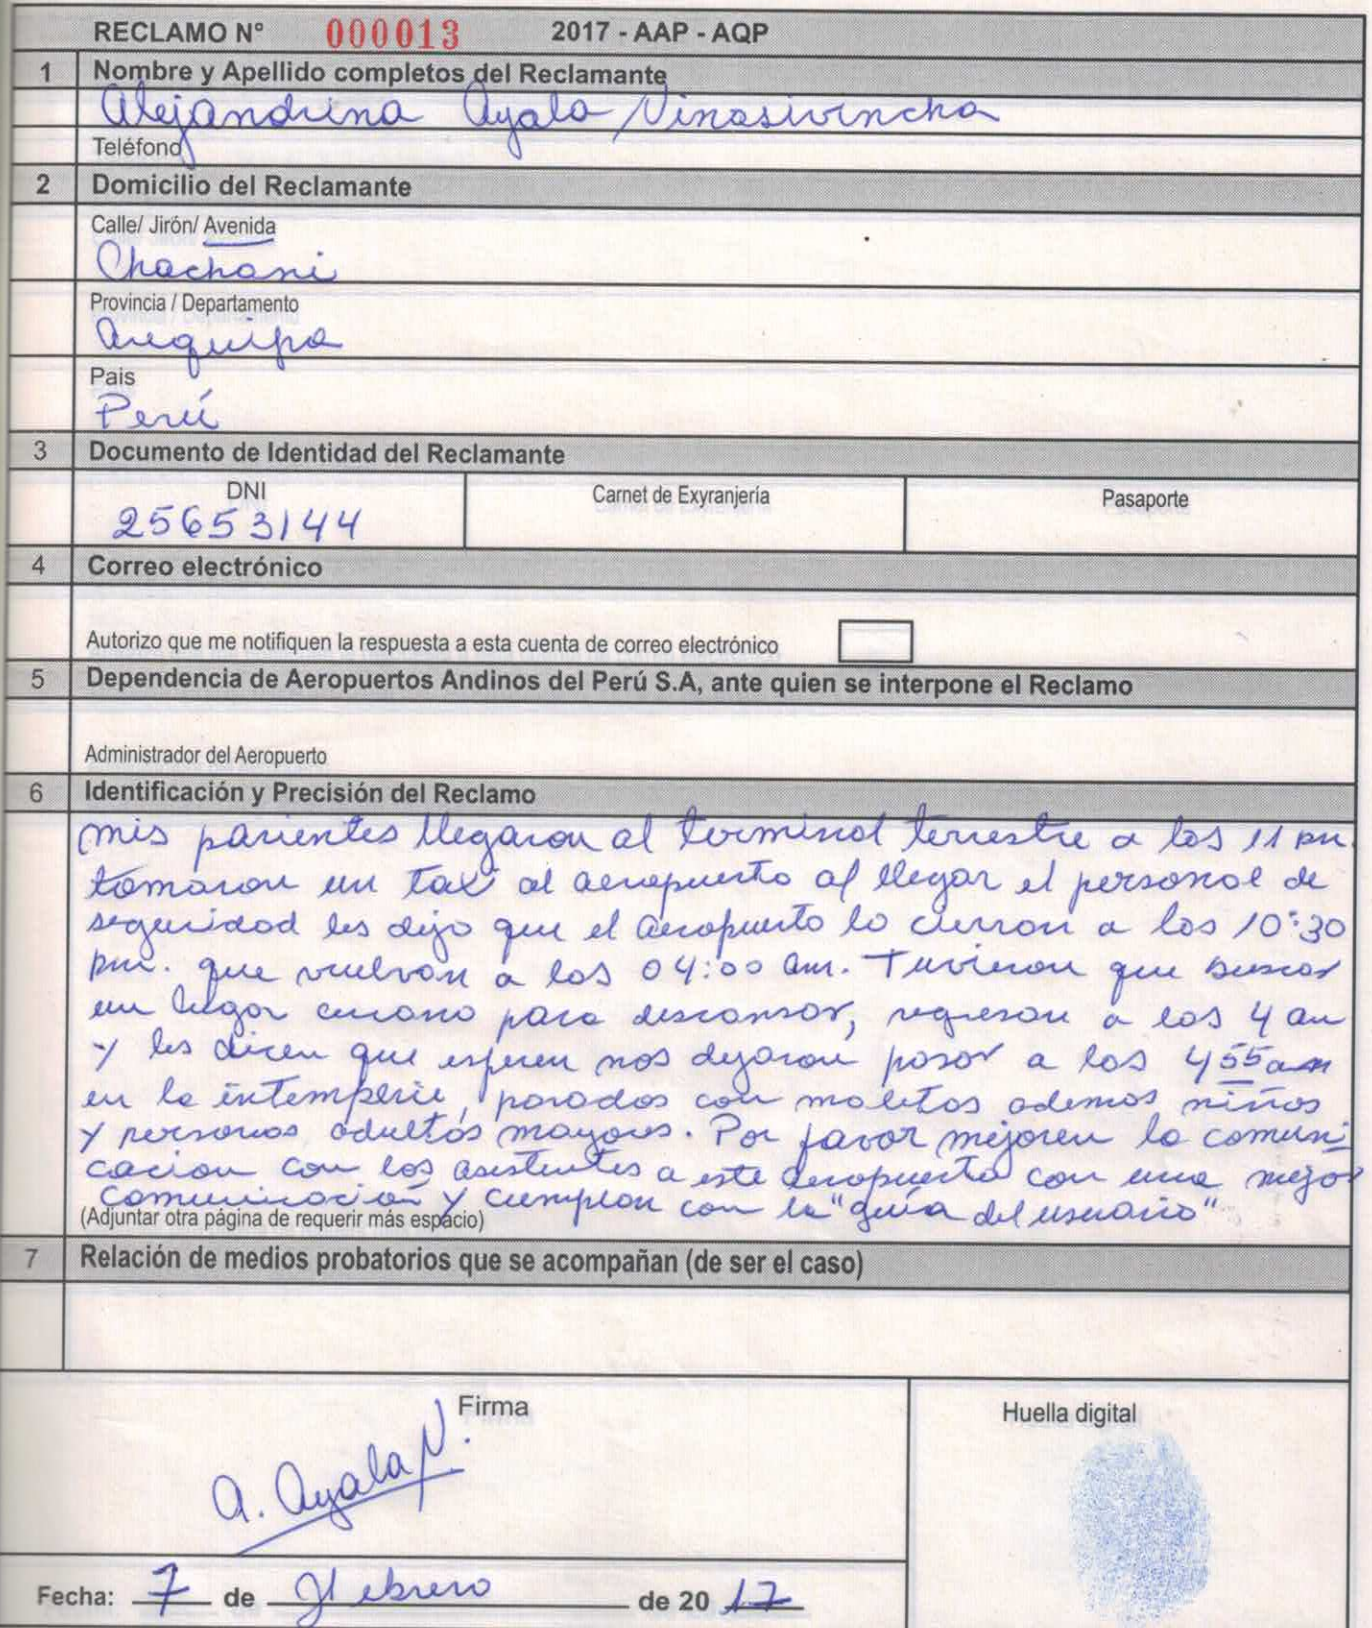 RECLAMO Nº 000013 2017 - AAP - AQP
1 Nombre y Apellido completos del Reclamante
Alejandrina Ayala Ninasivincha
Teléfono
2 Domicilio del Reclamante
Calle/ Jirón/ Avenida
Chachani
Provincia / Departamento
Arequipa
Pais
Perú
3 Documento de Identidad del Reclamante
DNI Carnet de Exyranjería Pasaporte
25653144
4 Correo electrónico
Autorizo que me notifiquen la respuesta a esta cuenta de correo electrónico
5 Dependencia de Aeropuertos Andinos del Perú S.A, ante quien se interpone el Reclamo
Administrador del Aeropuerto
6 Identificación y Precisión del Reclamo
mis parientes llegaron al terminal terrestre a las 11 pm.
tomaron un taxi al aeropuerto al llegar el personal de
seguridad les dijo que el aeropuerto lo cierran a las 10:30
pm. que vuelvan a las 04:00 am. Tuvieron que buscar
un lugar cercano para descansar, regresan a las 4 am
y les dicen que esperen nos dejaron pasar a las 4 55 am
en la intemperie, parados con maletas ademas niños
y personas adultas mayores. Por favor mejoren la comuni
cacion con los asistentes a este aeropuerto con una mejor
comunicación y cumplan con la "guia del usuario"
(Adjuntar otra página de requerir más espacio)
7 Relación de medios probatorios que se acompañan (de ser el caso)
Firma Huella digital
A. Ayala N.
Fecha: 7 de Febrero de 2017